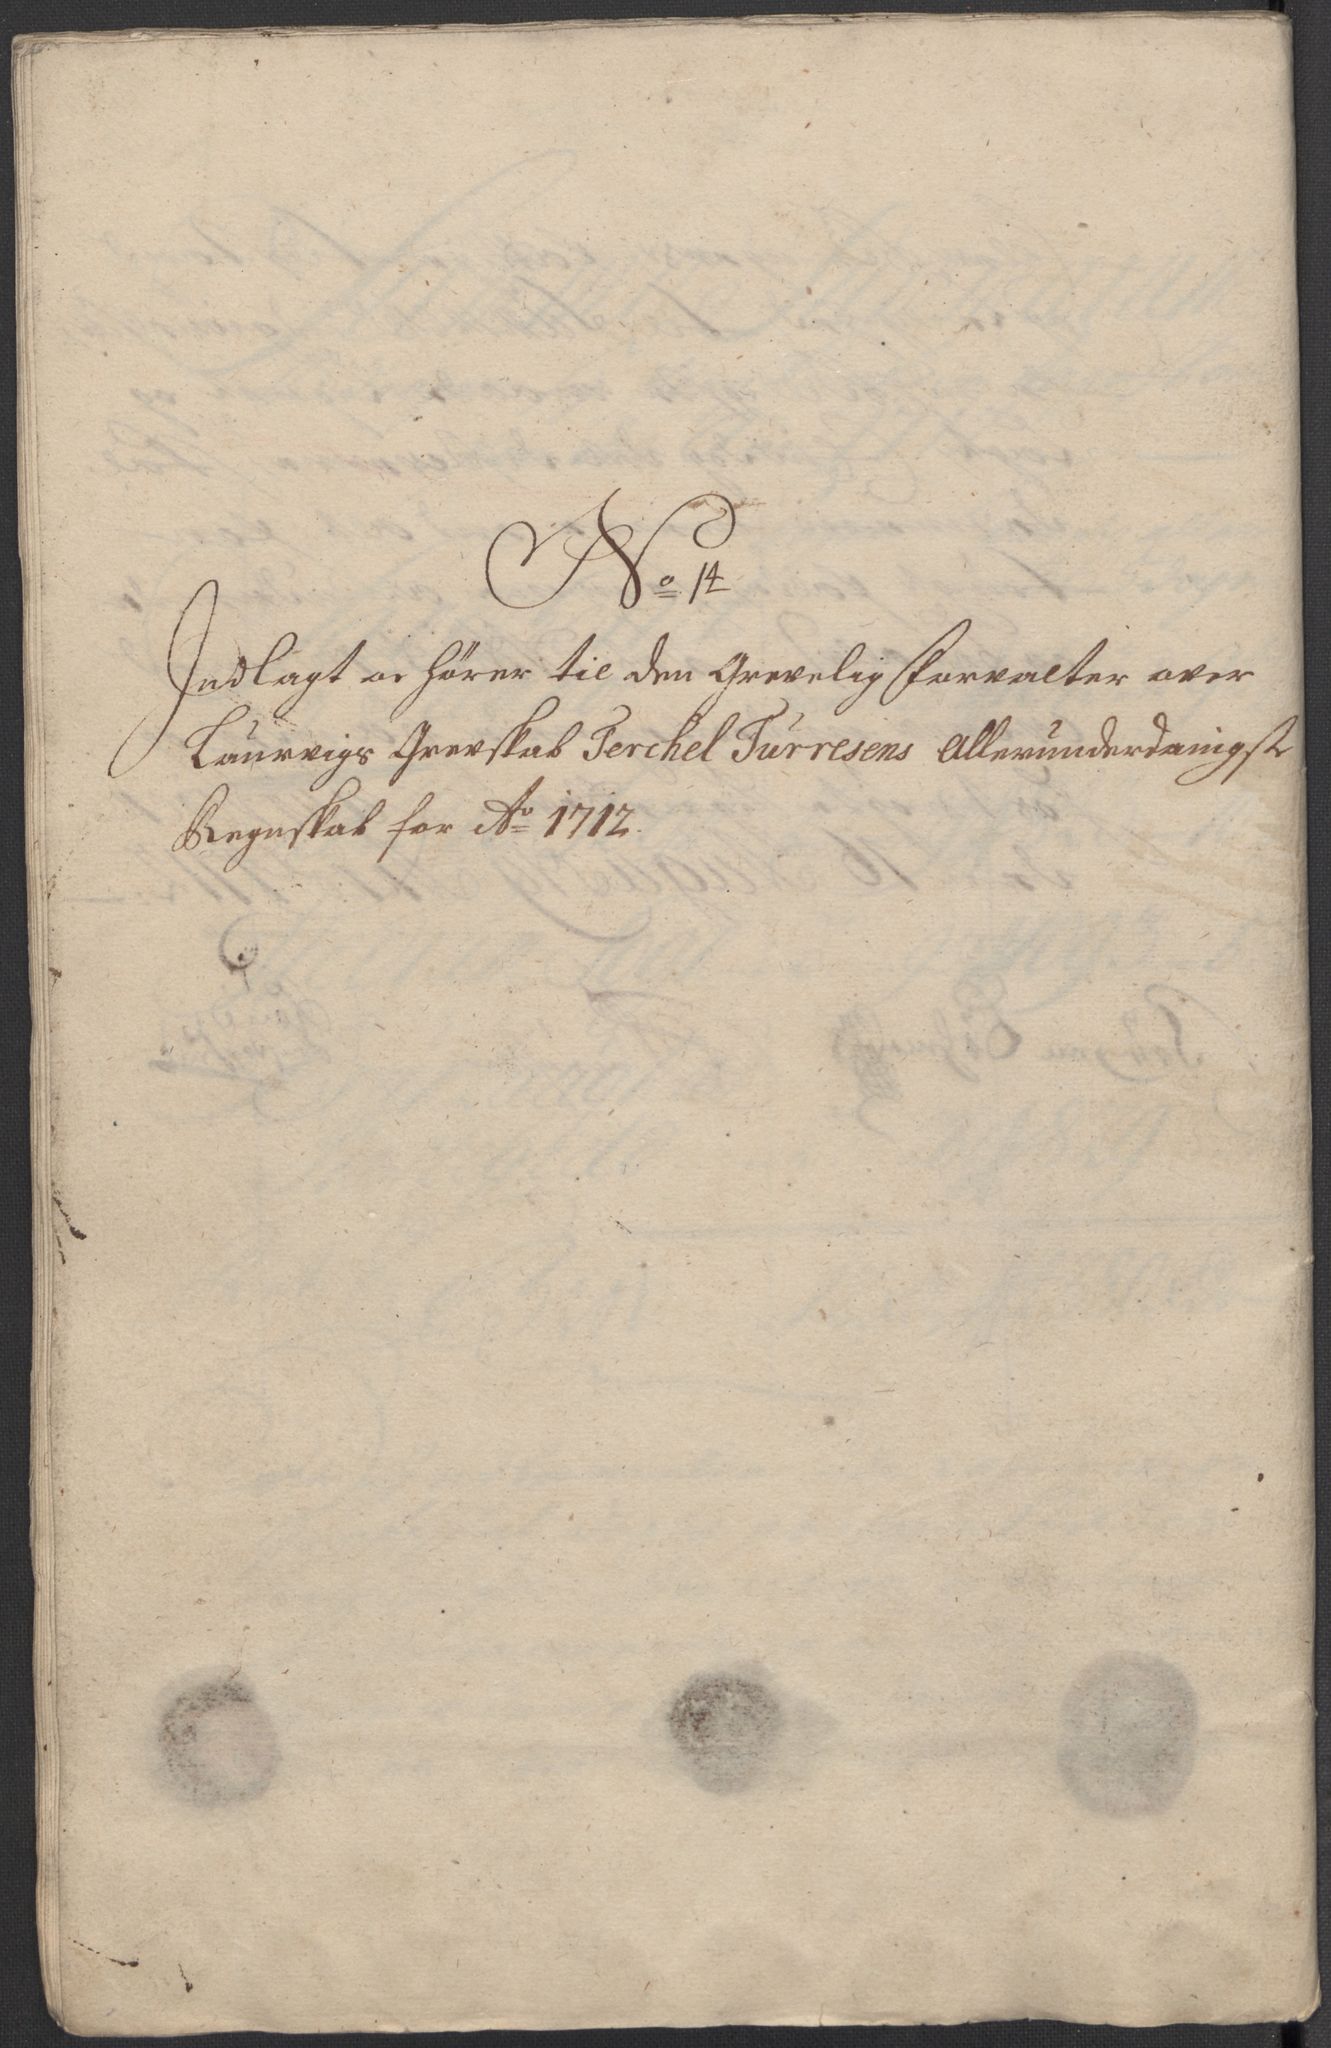 No 14
Indlagt oc hører til den Grevelig Forvalter over
Laurvigs Grevskab Terchel Turresens Allerunderdanigste
Regnskab for Ao 1712.